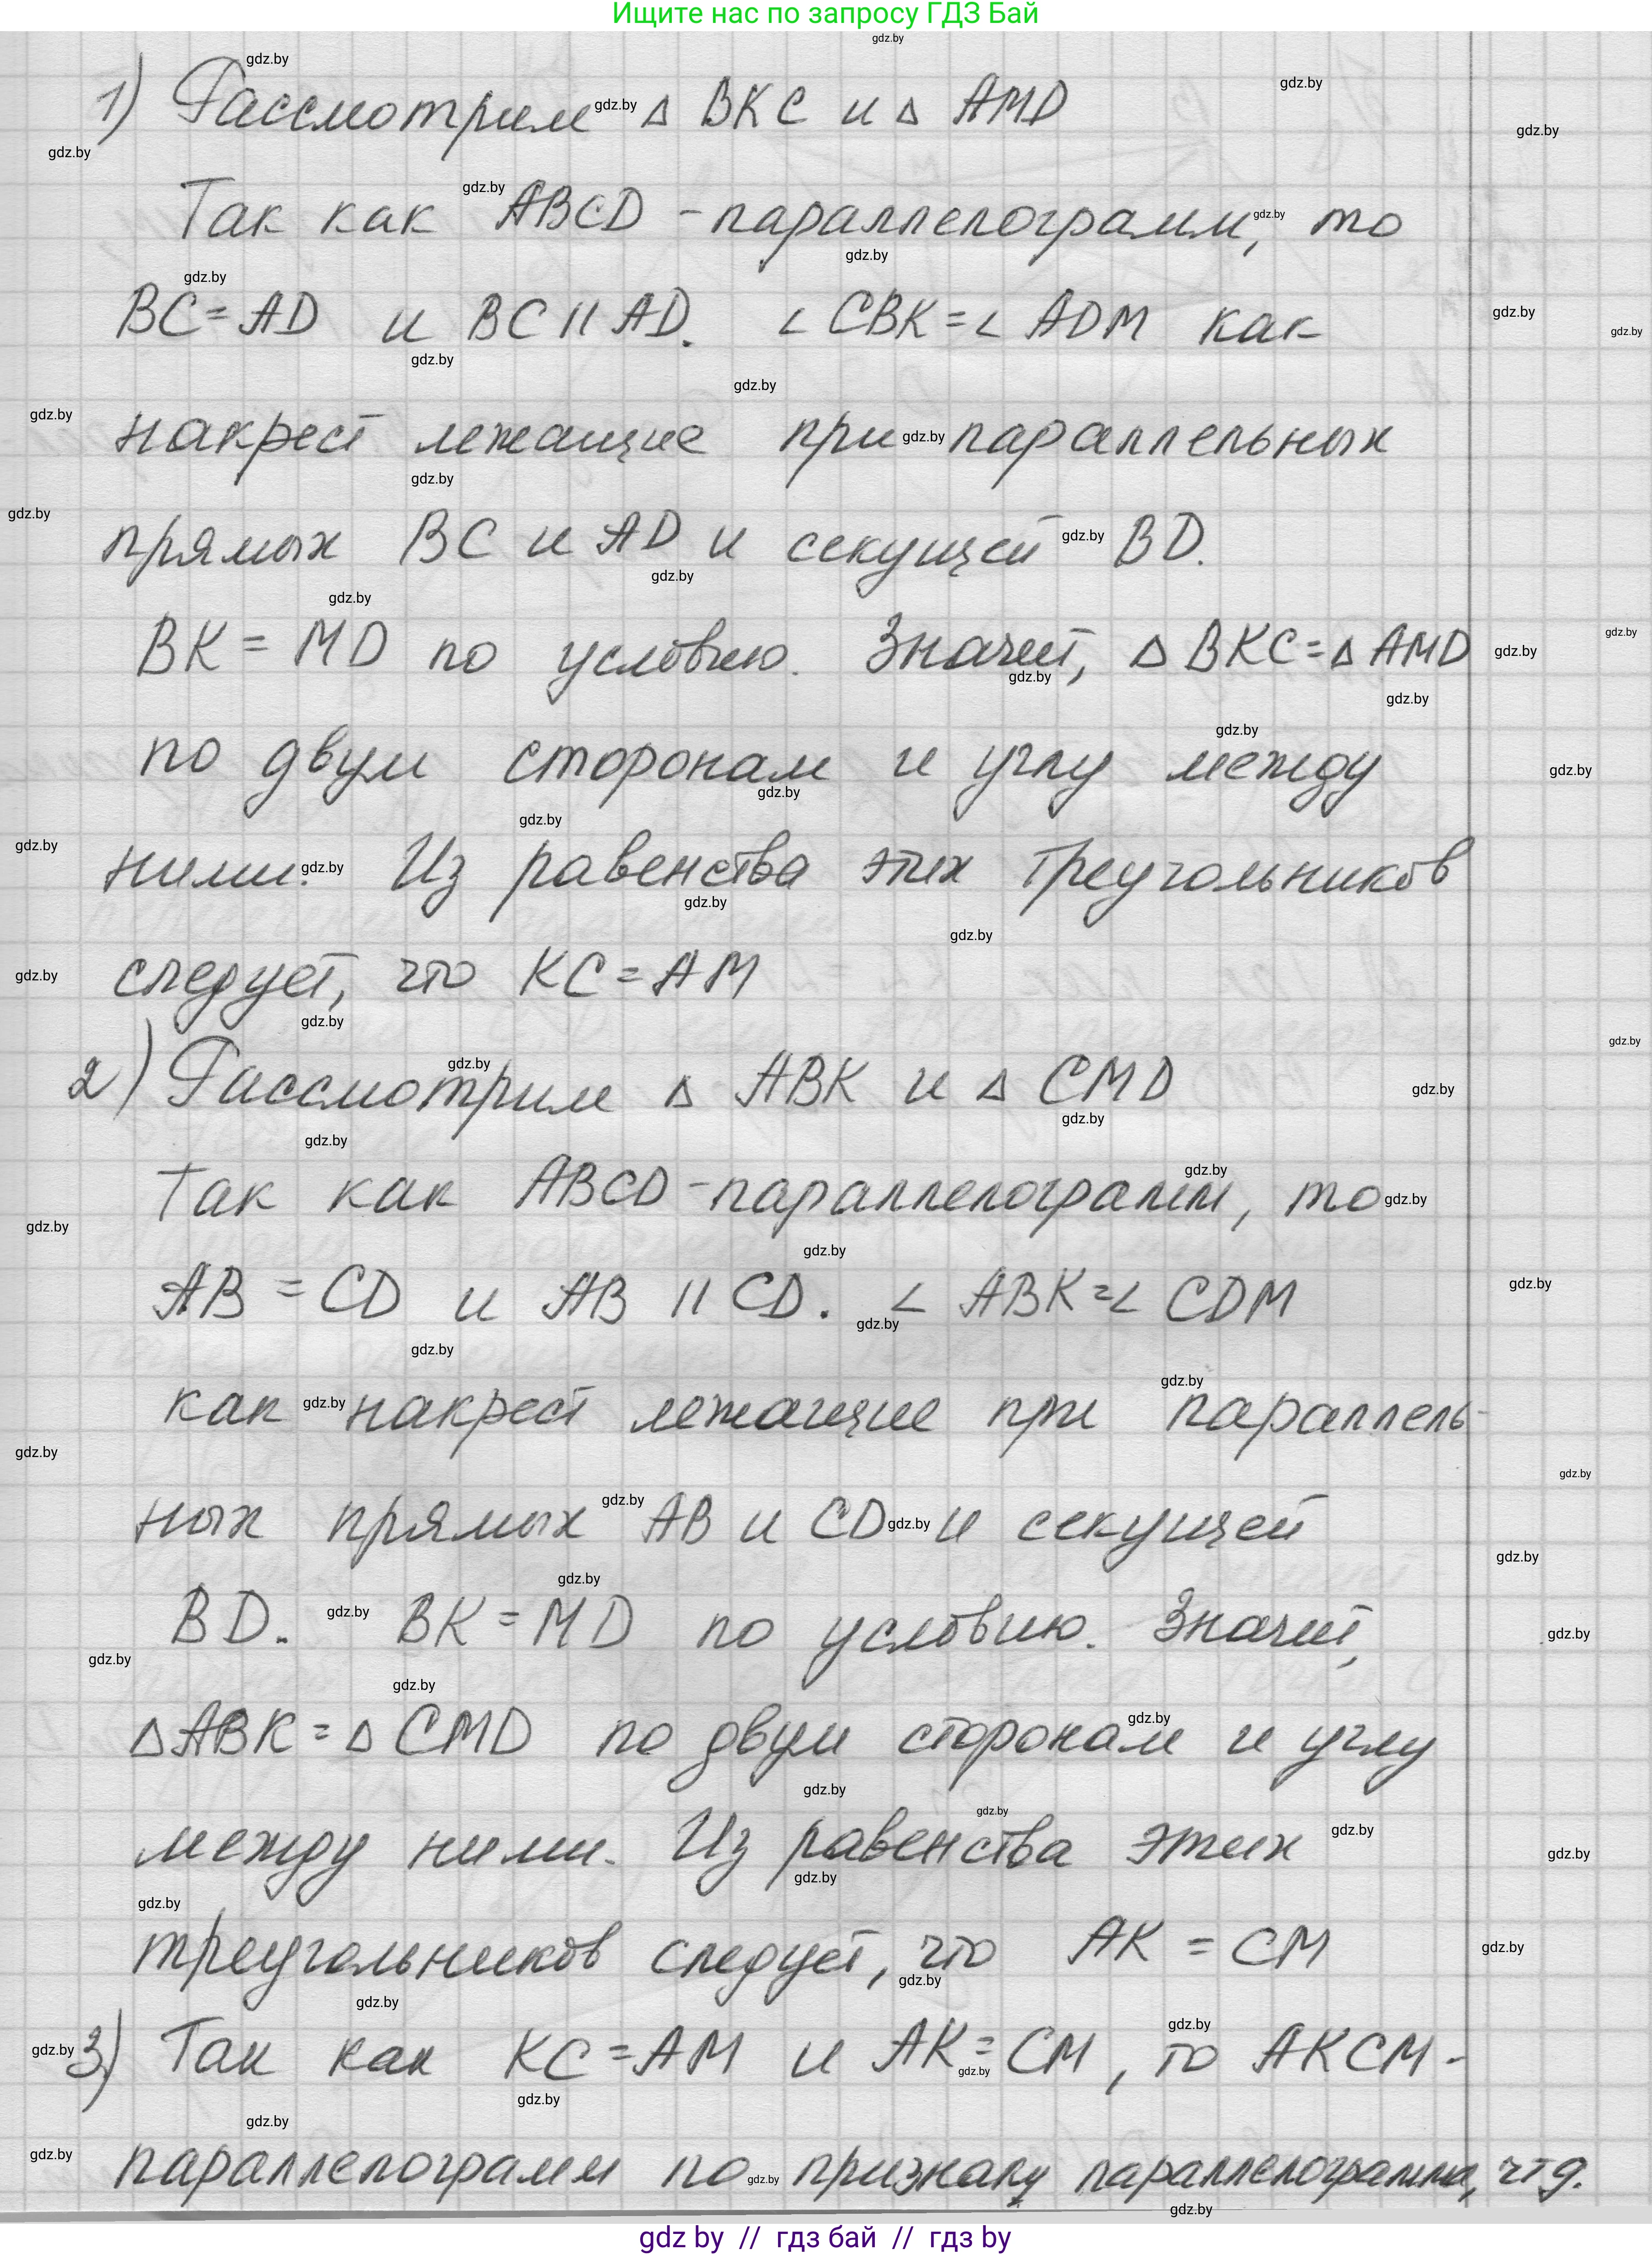 Ищите нас по запросу ГДЗ Бай
1) Рассмотрим △ BKC и △ AMD
Так как ABCD - параллелограмм, то
BC = AD и BC || AD. ∠ CBK = ∠ ADM как
накрест лежащие при параллельных
прямых BC и AD и секущей BD.
BK = MD по условию. Значит, △ BKC = △ AMD
по двум сторонам и углу между
ними. Из равенства этих треугольников
следует, что KC = AM
2) Рассмотрим △ ABK и △ CMD
Так как ABCD - параллелограмм, то
AB = CD и AB || CD. ∠ ABK = ∠ CDM
как накрест лежащие при параллель-
ных прямых AB и CD и секущей
BD. BK = MD по условию. Значит,
△ ABK = △ CMD по двум сторонам и углу
между ними. Из равенства этих
треугольников следует, что AK = CM
3) Так как KC = AM и AK = CM, то AKCM -
параллелограмм по признаку параллелограмма, чтд.
gdz by // гдз бай // гдз by